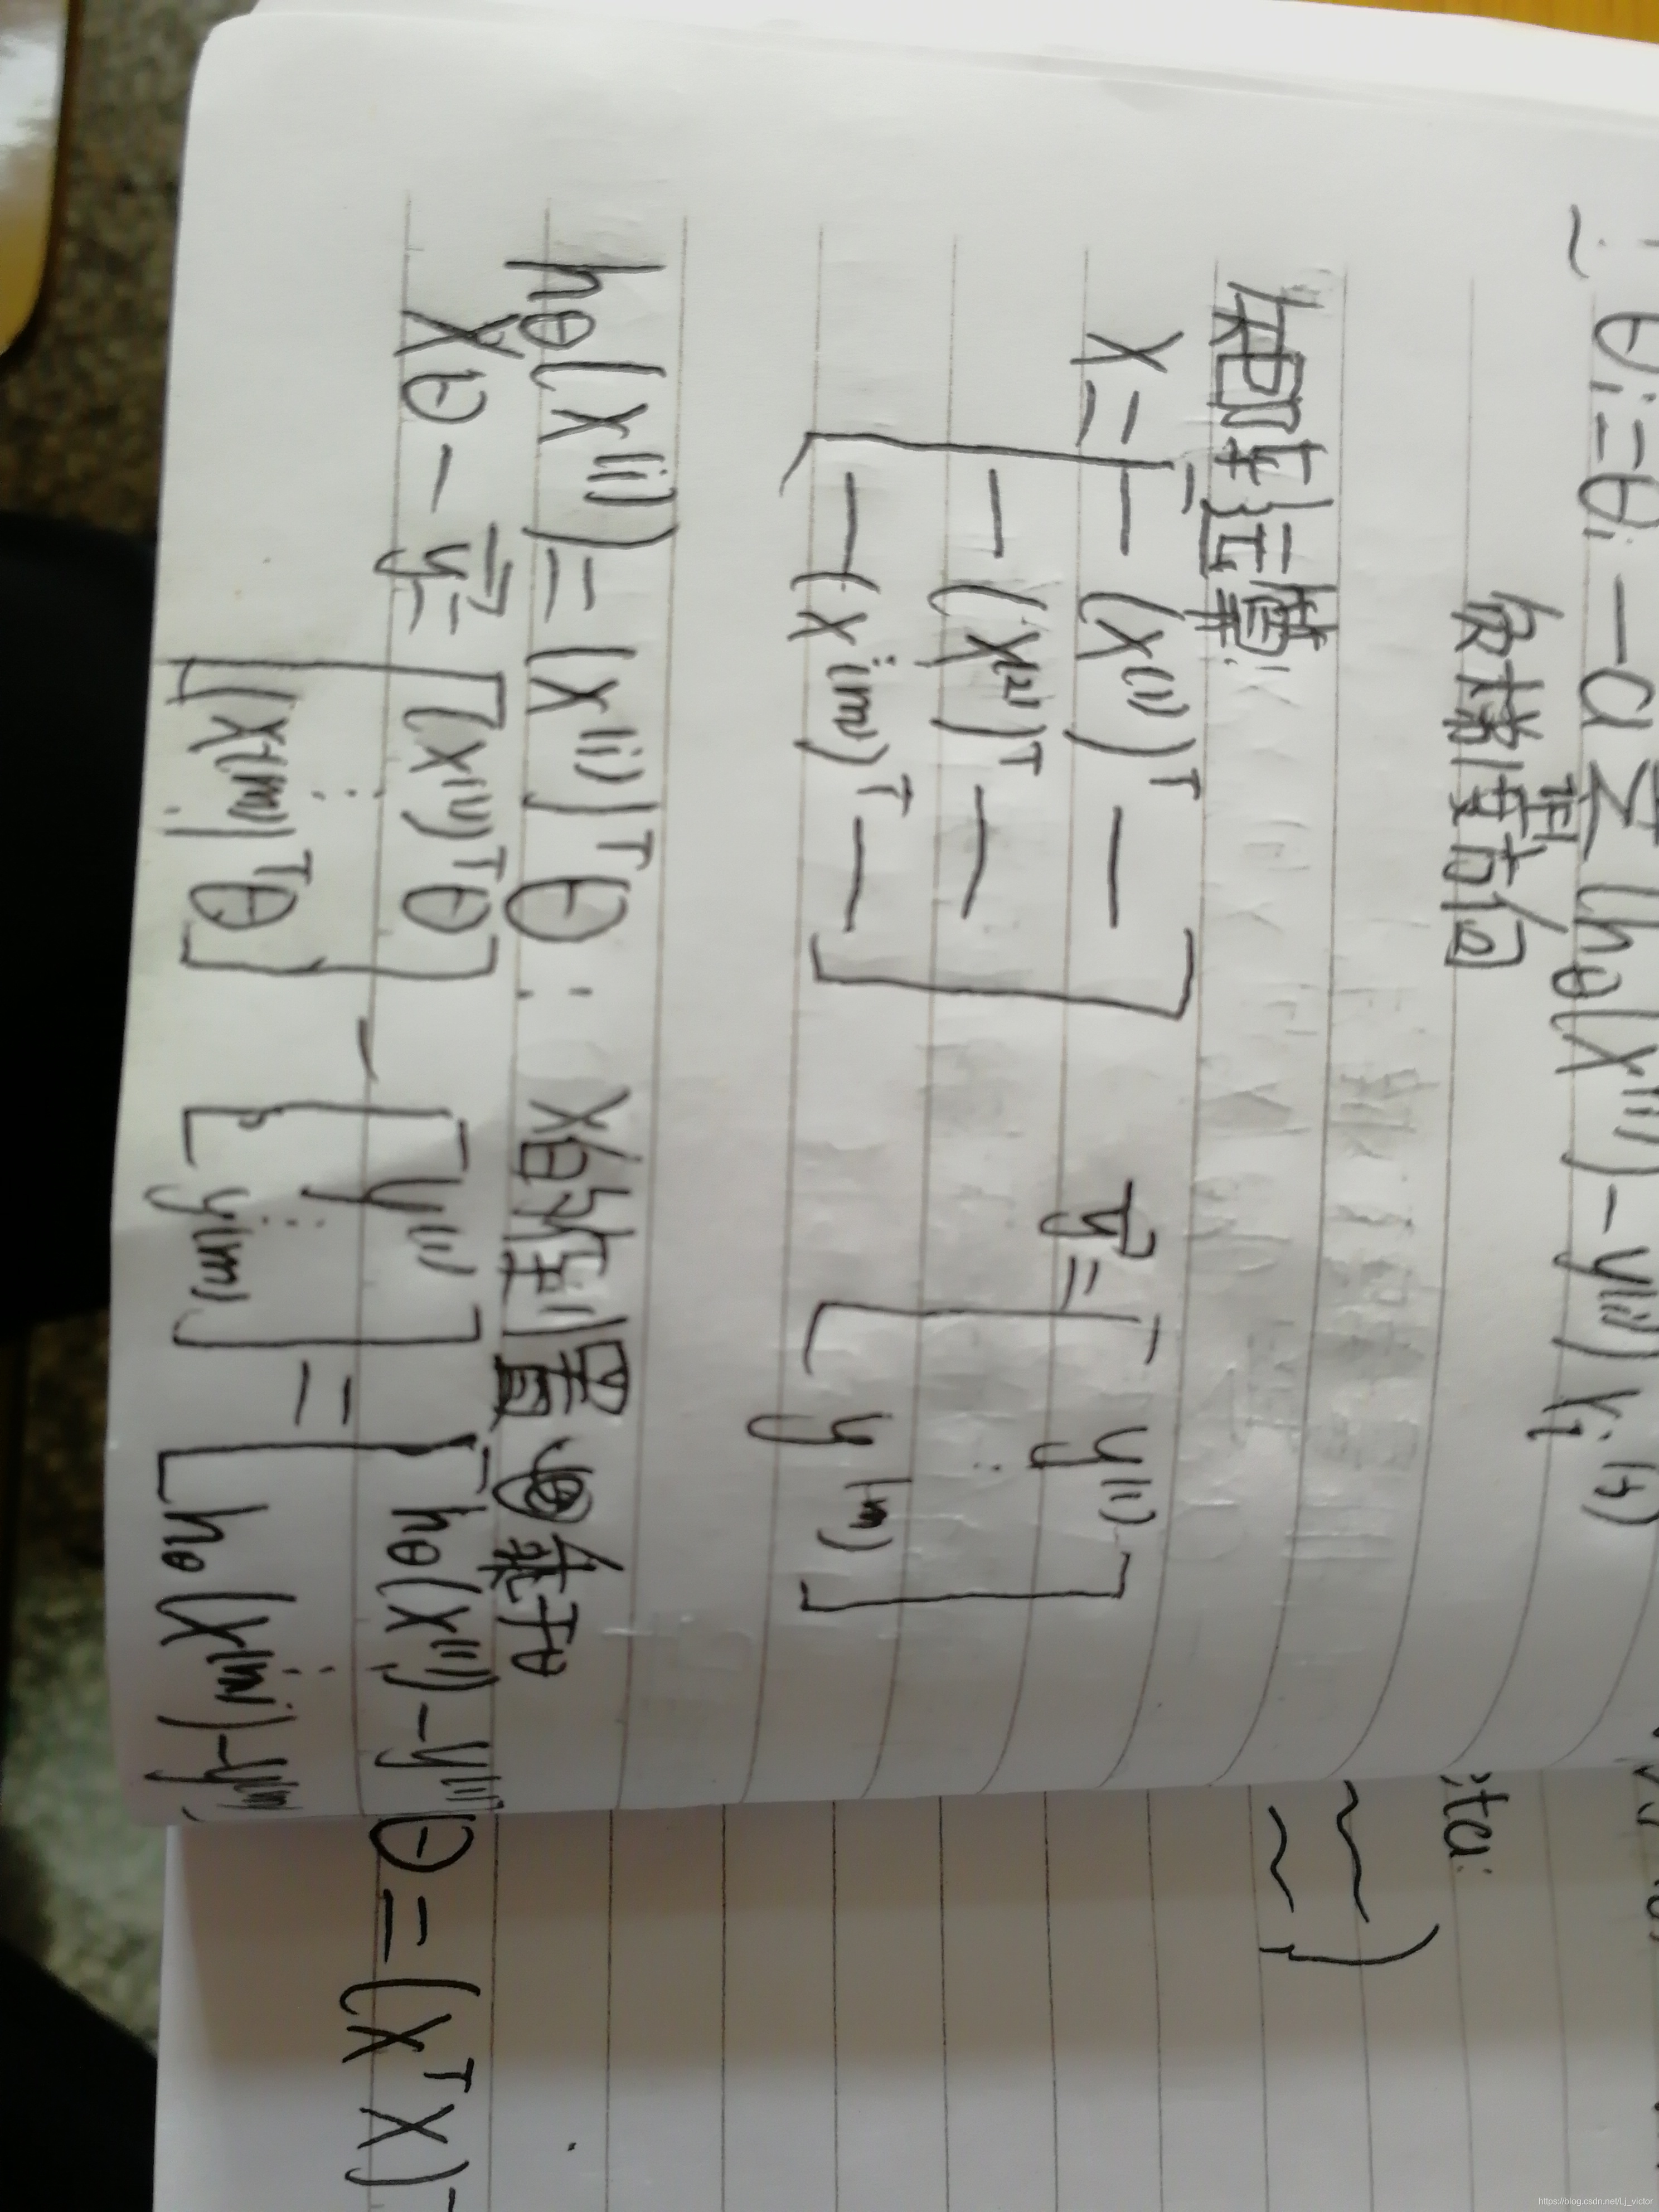 θi = θi − α Σ (hθ(x⁽ⁱ⁾) − y⁽ⁱ⁾) xi⁽ⁱ⁾
负梯度方向
矩阵运算:
X = [ — (x⁽¹⁾)ᵀ —
y⃗ = [ y⁽¹⁾
— (x⁽²⁾)ᵀ —
⋮
— (x⁽ᵐ⁾)ᵀ — ]
y⁽ᵐ⁾ ]
hθ(x⁽ⁱ⁾) = (x⁽ⁱ⁾)ᵀ θ : X的转置乘θ
Xθ − y⃗ = [ (x⁽¹⁾)ᵀ θ ⋮ (x⁽ᵐ⁾)ᵀ θ ] − [ y⁽¹⁾ ⋮ y⁽ᵐ⁾ ] = [ hθ(x⁽¹⁾) − y⁽¹⁾ ⋮ hθ(x⁽ᵐ⁾) − y⁽ᵐ⁾
θ = (XᵀX)⁻
https://blog.csdn.net/Lj_victor